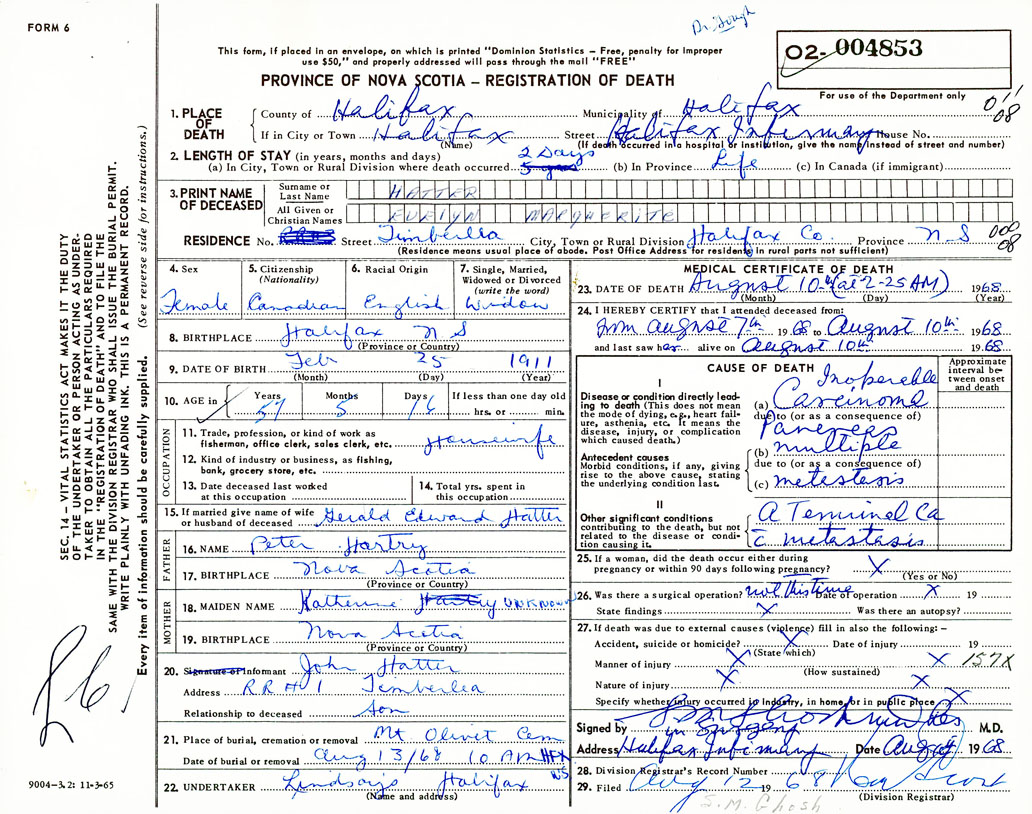 FORM 6
This form, if placed in an envelope, on which is printed "Dominion Statistics – Free, penalty for improper
use $50," and properly addressed will pass through the mail "FREE"
PROVINCE OF NOVA SCOTIA – REGISTRATION OF DEATH
02- 004853
For use of the Department only
SEC. 14 – VITAL STATISTICS ACT MAKES IT THE DUTY
OF THE UNDERTAKER OR PERSON ACTING AS UNDER-
TAKER TO OBTAIN ALL THE PARTICULARS REQUIRED
IN THE "REGISTRATION OF DEATH" AND TO FILE THE
SAME WITH THE DIVISION REGISTRAR WHO SHALL ISSUE THE BURIAL PERMIT.
WRITE PLAINLY WITH UNFADING INK. THIS IS A PERMANENT RECORD.
Every item of information should be carefully supplied. (See reverse side for instructions.)
1. PLACE OF DEATH
County of Halifax Municipality of Halifax
If in City or Town Halifax Street Halifax Infirmary House No.
(Name) (If death occurred in a hospital or institution, give the name instead of street and number)
2. LENGTH OF STAY (in years, months and days)
(a) In City, Town or Rural Division where death occurred 2 Days (b) In Province Life (c) In Canada (if immigrant)
3. PRINT NAME OF DECEASED
Surname or Last Name HATTER
All Given or Christian Names EVELYN MARGUERITE
RESIDENCE No. Street Timberlea City, Town or Rural Division Halifax Co. Province N.S
(Residence means usual place of abode. Post Office Address for residents in rural parts not sufficient)
4. Sex
Female
5. Citizenship (Nationality)
Canadian
6. Racial Origin
English
7. Single, Married, Widowed or Divorced (write the word)
Widow
8. BIRTHPLACE Halifax N S
(Province or Country)
9. DATE OF BIRTH Feb 25 1911
(Month) (Day) (Year)
10. AGE in Years Months Days If less than one day old
57 5 16 hrs. or min.
OCCUPATION
11. Trade, profession, or kind of work as
fisherman, office clerk, sales clerk, etc. Housewife
12. Kind of industry or business, as fishing,
bank, grocery store, etc.
13. Date deceased last worked
at this occupation
14. Total yrs. spent in
this occupation
15. If married give name of wife
or husband of deceased Gerald Edward Hatter
FATHER
16. NAME Peter Hartry
17. BIRTHPLACE Nova Scotia
(Province or Country)
MOTHER
18. MAIDEN NAME Katherine Hartry UNKNOWN
19. BIRTHPLACE Nova Scotia
(Province or Country)
20. Signature of Informant John Hatter
Address R R # 1 Timberlea
Relationship to deceased Son
21. Place of burial, cremation or removal Mt Olivet Cem
Date of burial or removal Aug 13/68 10 AM HFX
NS
22. UNDERTAKER Lindsay's Halifax
(Name and address)
9004–3.2: 11-3-65
MEDICAL CERTIFICATE OF DEATH
23. DATE OF DEATH August 10th (at 2-25 AM) 1968
(Month) (Day) (Year)
24. I HEREBY CERTIFY that I attended deceased from:
from August 7th 1968 to August 10th 1968
and last saw her alive on August 10th 1968
CAUSE OF DEATH
Approximate interval between onset and death
I
Disease or condition directly lead-
ing to death (This does not mean
the mode of dying, e.g., heart fail-
ure, asthenia, etc. It means the
disease, injury, or complication
which caused death.)
Inoperable
(a) Carcinoma
due to (or as a consequence of)
Pancreas
Antecedent causes
Morbid conditions, if any, giving
rise to the above cause, stating
the underlying condition last.
(b) multiple
due to (or as a consequence of)
(c) metastesis
II
Other significant conditions
contributing to the death, but not
related to the disease or condi-
tion causing it.
A Terminel Ca
c̄ metastasis
25. If a woman, did the death occur either during
pregnancy or within 90 days following pregnancy? X
(Yes or No)
26. Was there a surgical operation? not this time Date of operation X 19
State findings X Was there an autopsy?
27. If death was due to external causes (violence) fill in also the following: –
Accident, suicide or homicide? X Date of injury 19
(State which)
Manner of injury X X 157X
(How sustained)
Nature of injury X
Specify whether injury occurred in industry, in home, or in public place X
Signed by M.D.
Address Halifax Infirmary Date Aug 1968
28. Division Registrar's Record Number
29. Filed Aug 12 1968
(Division Registrar)
S.M. Ghosh